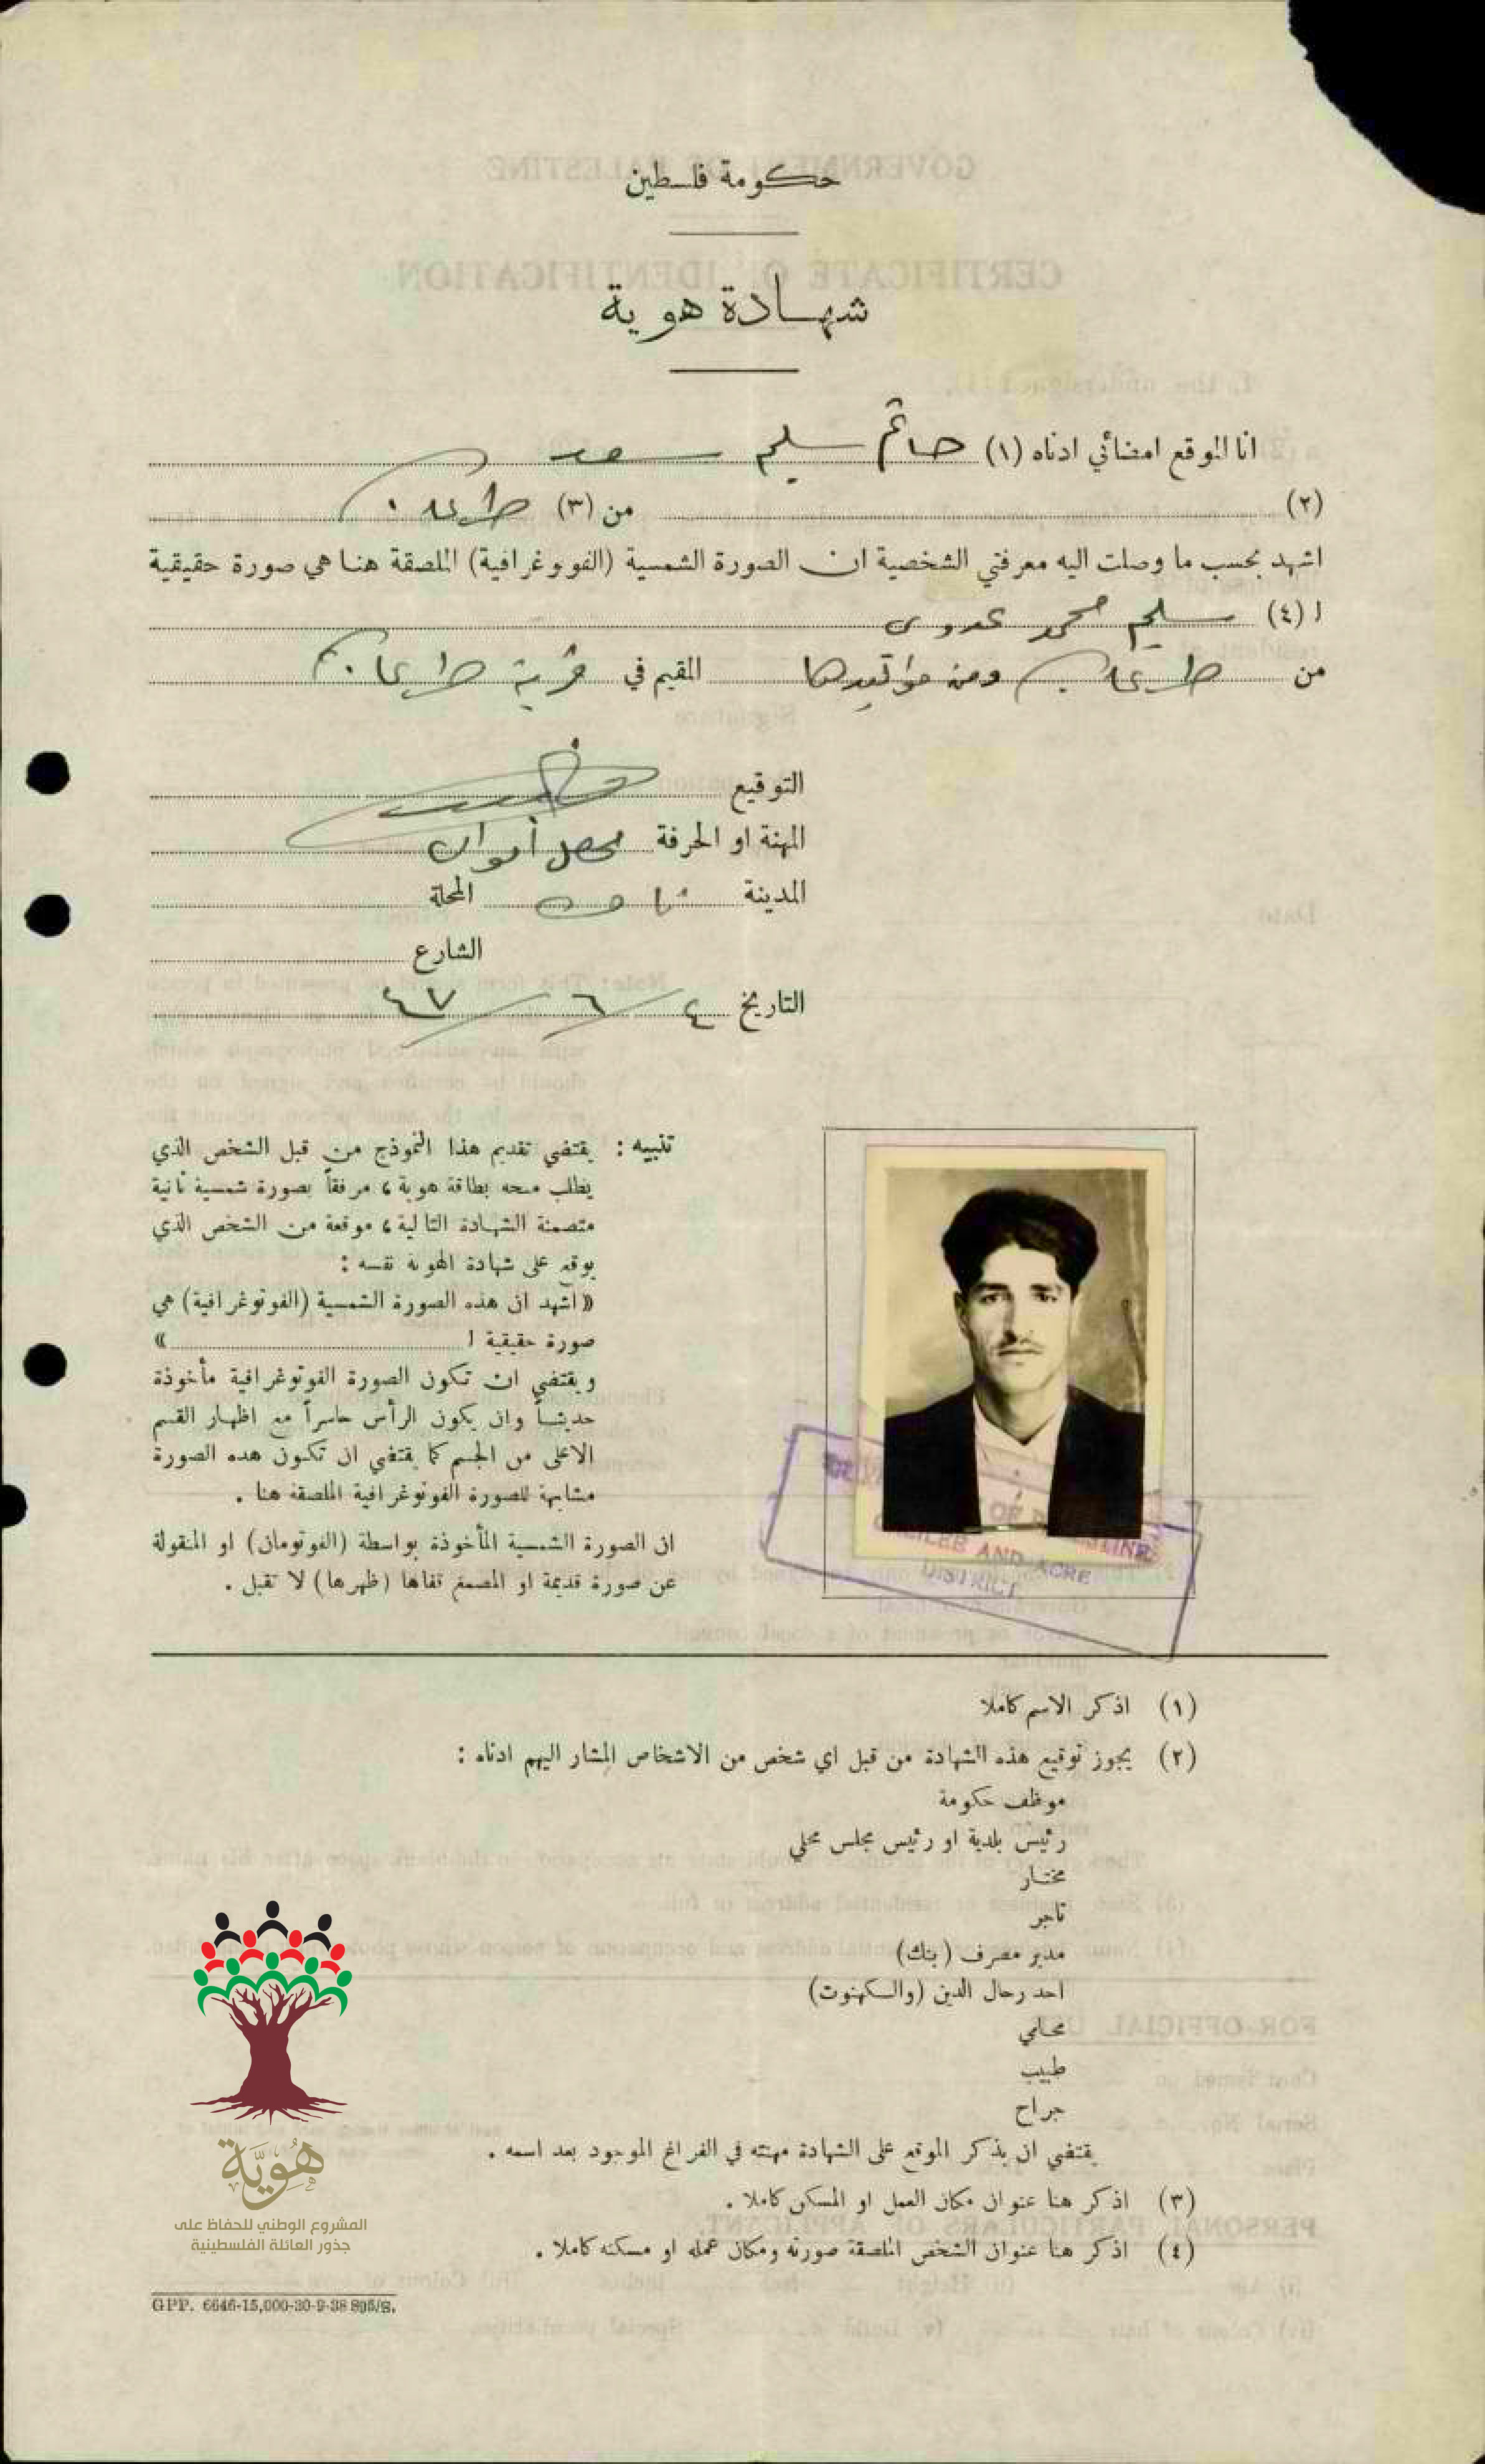 حكومة فلسطين
شهادة هوية
انا الموقع امضائي ادناه (١) حاتم سليم سعد
(٢) من (٣)
اشهد بحسب ما وصلت اليه معرفتي الشخصية ان الصورة الشمسية (الفوتوغرافية) الملصقة هنا هي صورة حقيقية
ا (٤) سليم محمد عدوي
من ومن مواليدها المقيم في قرية
التوقيع
المهنة او الحرفة محصل أموال
المدينة المحلة
الشارع
التاريخ ٤ / ٦ / ٤٧
تنبيه : يقتضي تقديم هذا النموذج من قبل الشخص الذي
يطلب منحه بطاقة هوية ، مرفقاً بصورة شمسية ثانية
متضمنة الشهادة التالية ، موقعة من الشخص الذي
يوقع على شهادة الهوية نفسه :
« اشهد ان هذه الصورة الشمسية (الفوتوغرافية) هي
صورة حقيقية ا »
ويقتضي ان تكون الصورة الفوتوغرافية مأخوذة
حديثاً وان يكون الرأس حاسراً مع اظهار القسم
الاعلى من الجسم كما يقتضي ان تكون هذه الصورة
مشابهة للصورة الفوتوغرافية الملصقة هنا .
ان الصورة الشمسية المأخوذة بواسطة (الفوتومان) او المنقولة
عن صورة قديمة او المصمغ قفاها (ظهرها) لا تقبل .
GALILEE AND ACRE
DISTRICT
(١) اذكر الاسم كاملا
(٢) يجوز توقيع هذه الشهادة من قبل اي شخص من الاشخاص المشار اليهم ادناه :
موظف حكومة
رئيس بلدية او رئيس مجلس محلي
مختار
تاجر
مدير مصرف (بنك)
احد رجال الدين (والكهنوت)
محامي
طبيب
جراح
يقتضي ان يذكر الموقع على الشهادة مهنته في الفراغ الموجود بعد اسمه .
(٣) اذكر هنا عنوان مكان العمل او المسكن كاملا .
(٤) اذكر هنا عنوان الشخص الملصقة صورته ومكان عمله او مسكنه كاملا .
هُويَّة
المشروع الوطني للحفاظ على
جذور العائلة الفلسطينية
GPP. 6646-15,000-30-9-38 805/S.